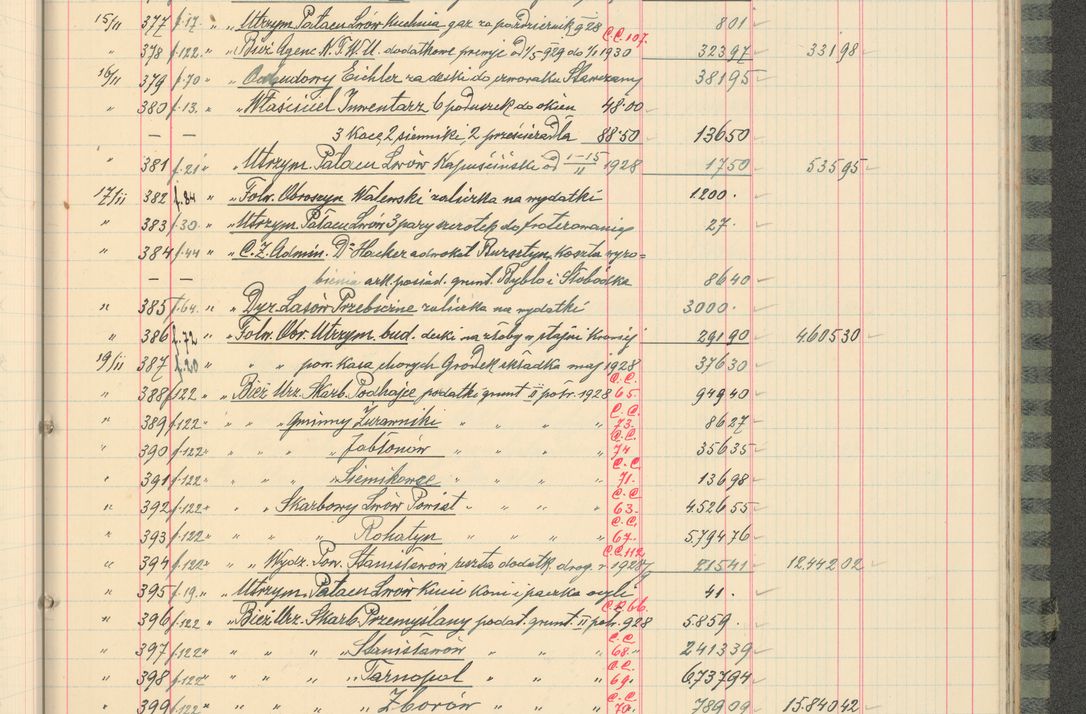 15/11 377 f.17. " " Utrzym. Pałacu Lwów Kuchnia gaz za październik 928 801
C.C.107.
" 378 f.122. " " Bież Agenc. N.T.W.U. dodatkowe premje od 1/5-929 do 1/1 1930 32397 33198
16/11 379 f.70 " " Odbudowy Eichler za deski do czworaku Stawczany 38195
" 380 f.13. " " Właściciel Inwentarz 6 poduszek do okien 48.00
— — 3 koce, 2 sienniki, 2 prześcieradła 88.50 13650
" 381 f.21 " " Utrzym. Pałacu Lwów Kapuściński od 1-15/11 1928 1750 53595
17/11 382 f.84 " " Folw. Obroszyn Walewski zaliczka na wydatki 1200.
" 383 f.30. " " Utrzym. Pałacu Lwów 3 pary szczotek do froterowania 27.
" 384 f.44 " " C.Z. Admin. Dr. Hacker adwokat Bursztyn koszta wyro=
— — bienia ark. posiad. grunt. Bybło i Słobódka 8640
" 385 f.64. " " Dyr. Lasów Przebieczne zaliczka na wydatki 3000.
" 386 f.72 " " Folw. Obr. Utrzym. bud. deski na żłoby w stajni koniej 29190 460530
19/11 387 f.20 " " pow. kasa chorych Gródek składka maj 1928 37630
C.C.
" 388 f.122 " Bież Urz. Skarb. Podhajce podatki grunt II półr. 1928 65. 94940
C.C.
" 389 f.122 " " " " Gminny Żurawniki " " " " 73. 8627
C.C.
" 390 f.122 " " " " Jabłonów " " " " 74. 35635
C.C.
" 391 f.122 " " " " Siemikowce " " " " 71. 13698
C.C.
" 392 f.122 " " " Skarbowy Lwów Powiat " " " 63. 452655
C.C.
" 393 f.122 " " " " Rohatyn " " " " 67. 579476
C.C.112
" 394 f.122 " " Wydz. Pow. Stanisławów reszta dodatk. drog. r 1928/9 21541 1244202
" 395 f.19. " " Utrzym. Pałacu Lwów kucie koni i paczka 41.
C.C.66.
" 396 f.122 " Bież Urz. Skarb. Przemyślany podat. grunt. II półr. 928 5859.
C.C.
" 397 f.122 " " " " Stanisławów " " " 68. " 241339
C.C.
" 398 f.122 " " " " Tarnopol " " " 69. 673794
C.C.
" 399 f.122 " " " " Zborów " " " " 70. 78909 1584042